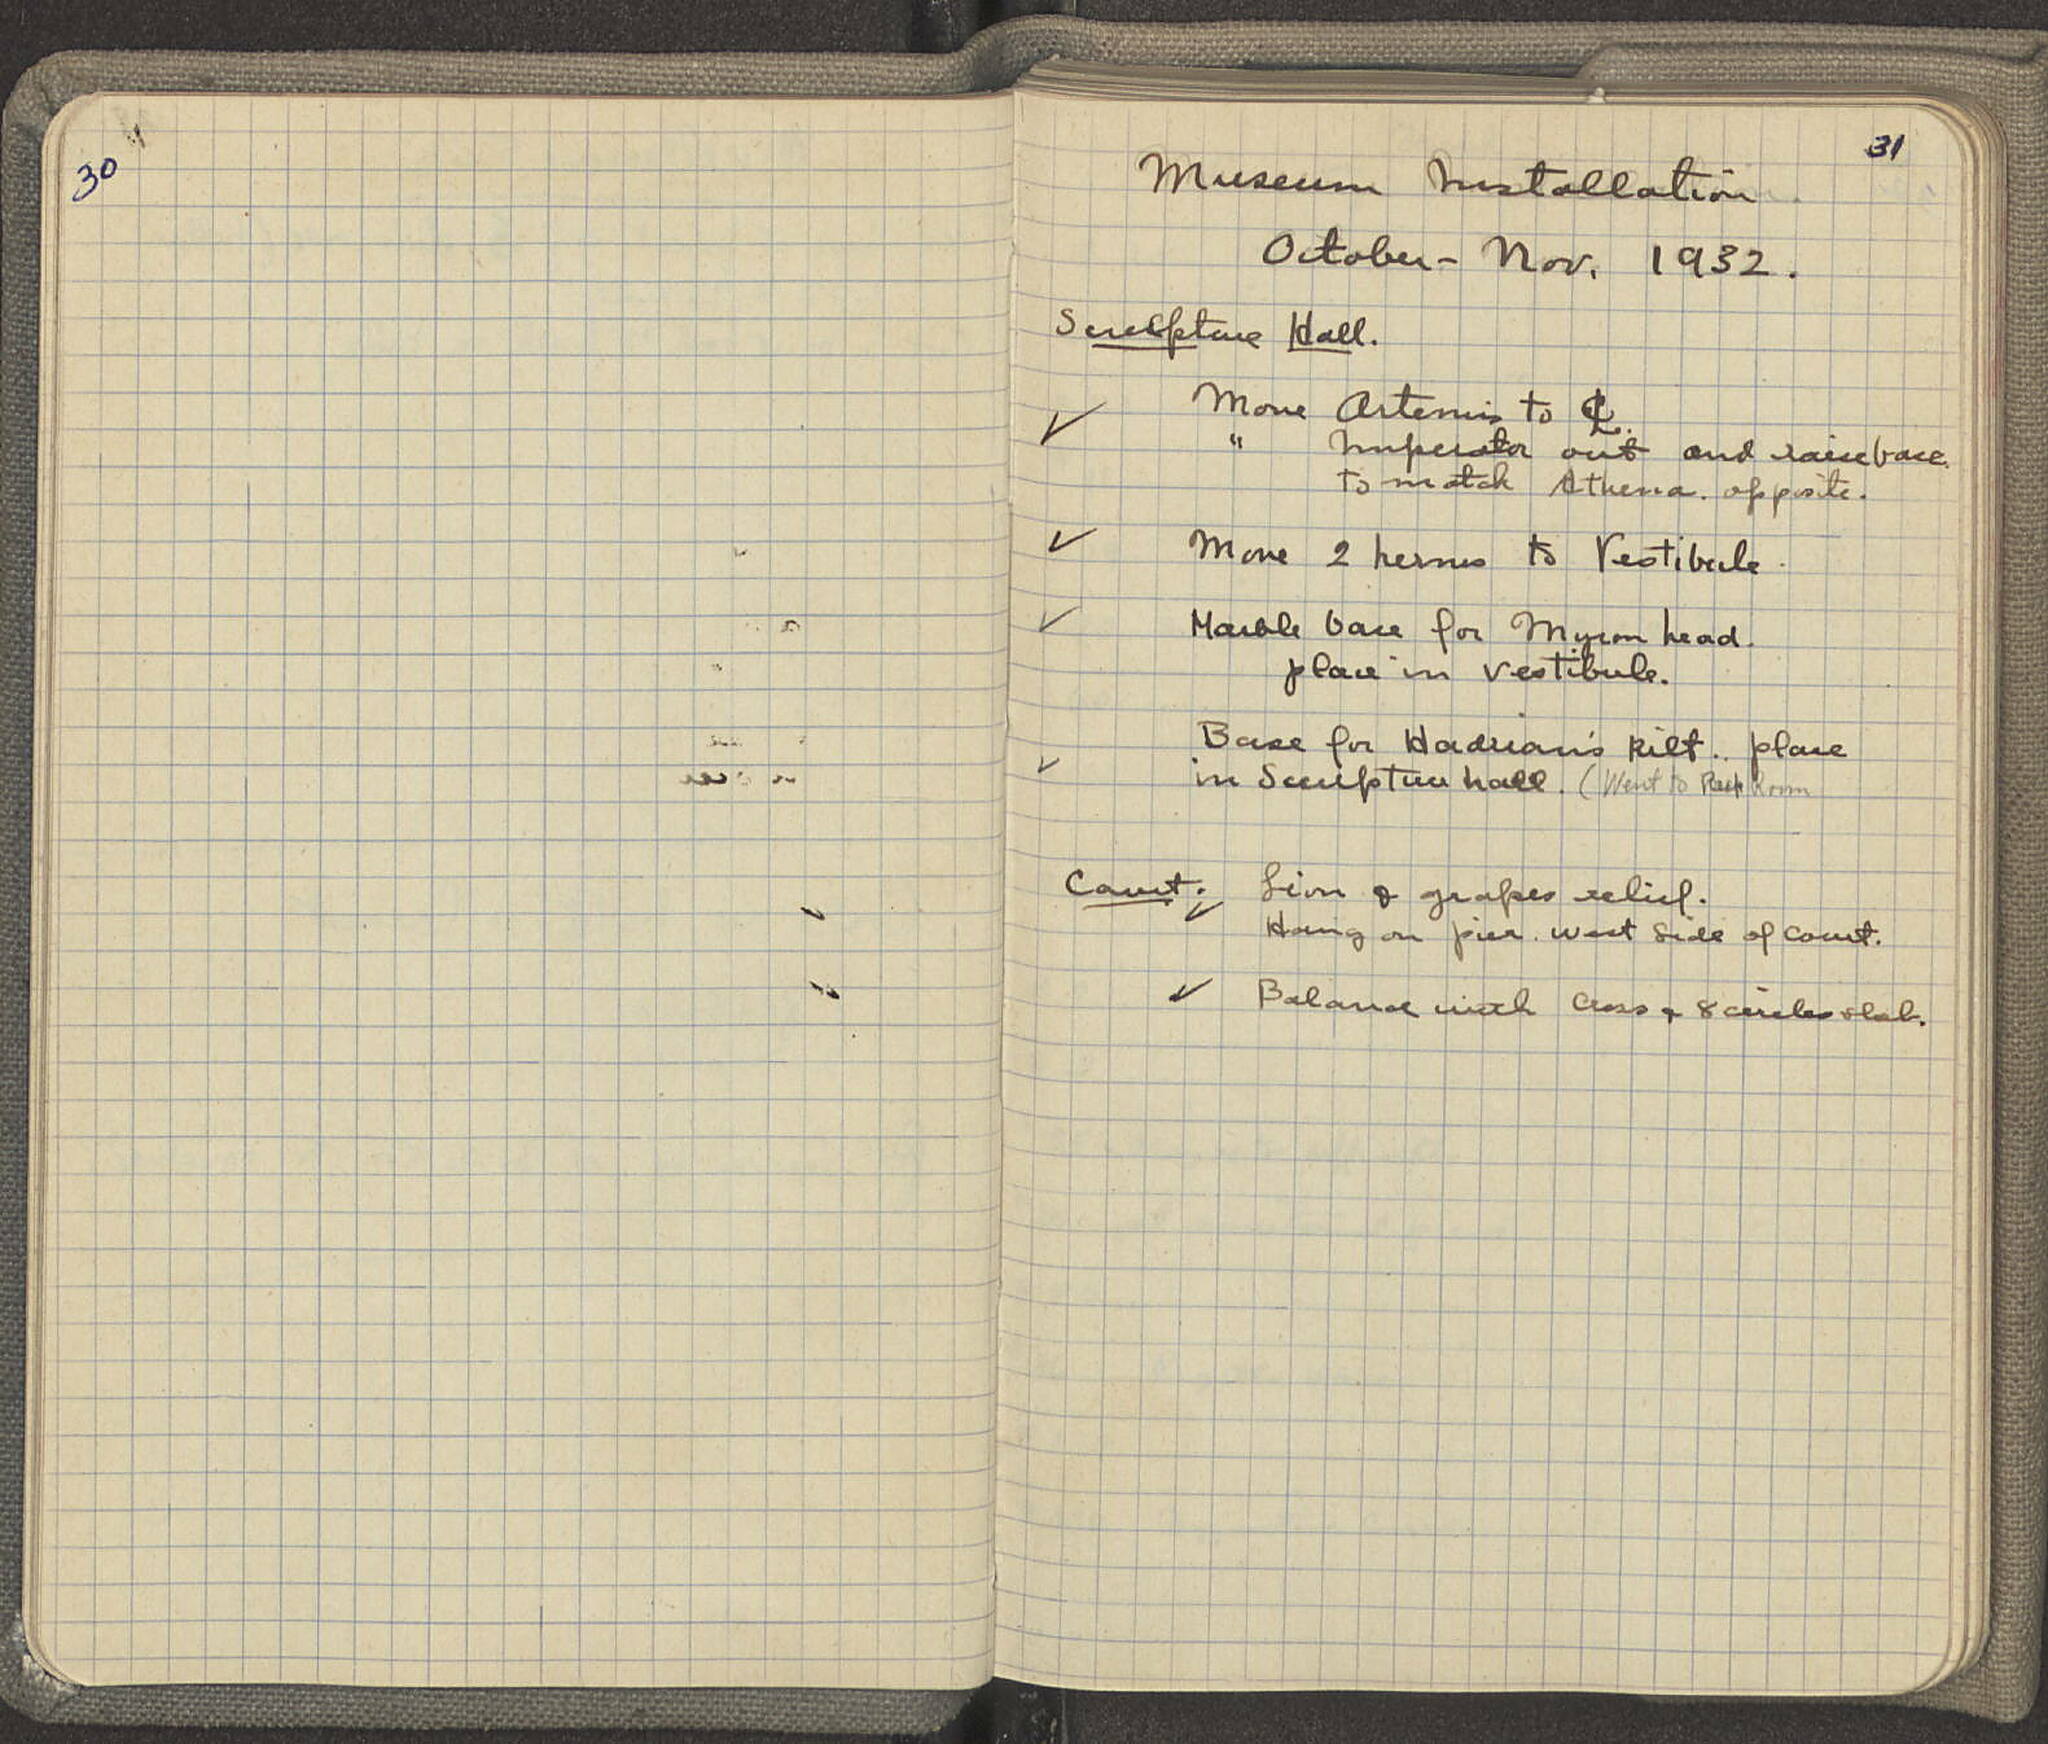 30
31
Museum Installation
October - Nov. 1932.
Sculpture Hall.
✓ Move Artemis to ℄.
" Imperator out and raise base
to match Athena opposite.
✓ Move 2 herms to Vestibule.
✓ Marble base for Myron head.
place in vestibule.
Base for Hadrian's kilt.. place
✓ in Sculpture hall. (Went to Room
Court. Lion & grapes relief.
✓ Hang on pier. West side of court.
✓ Balance with Cross & 8 circles slab.